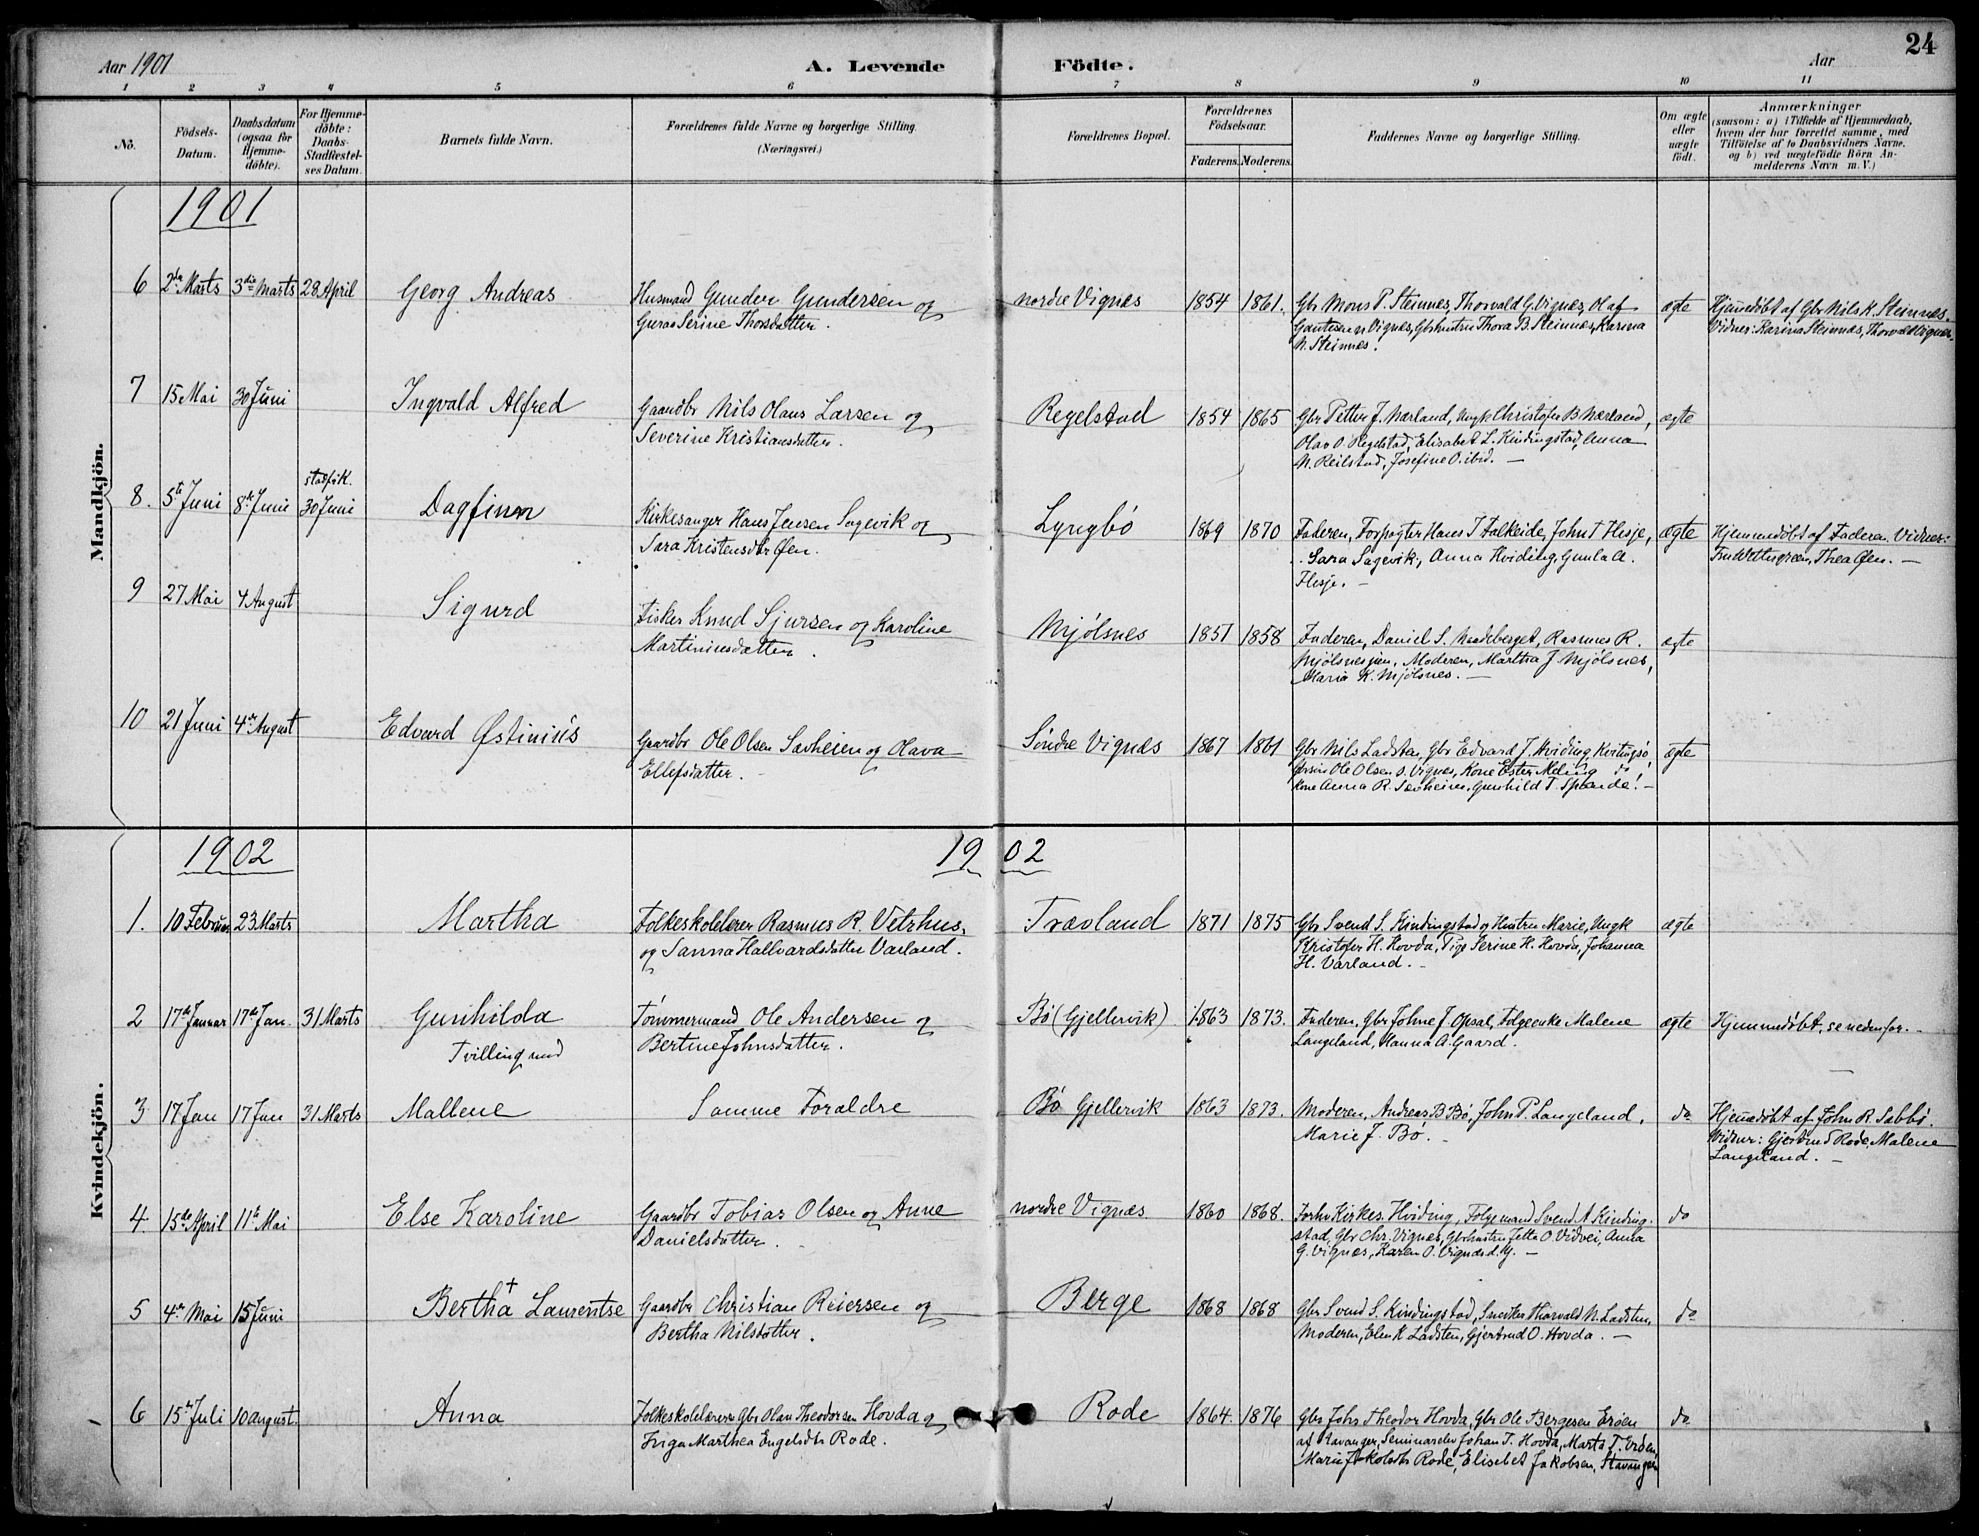 24
Aar 1901 A. Levende Födte. Aar
1 2 3 4 5 6 7 8 9 10 11
No. Födsels-Datum. Daabsdatum (ogsaa for Hjemme-döbte). For Hjemme-döbte: Daabs-Stadfæstel-ses Datum. Barnets fulde Navn. Forældrenes fulde Navne og borgerlige Stilling. (Næringsvei.) Forældrenes Bopæl. Forældrenes Födselsaar. Faderens. Moderens. Faddernes Navne og borgerlige Stilling. Om ægte eller uægte födt. Anmærkninger (saasom: a) i Tilfælde af Hjemmedaab, hvem der har forrettet samme, med Tilföielse af to Daabsvidners Navne, og b) ved uægtefödte Börn An-melderens Navn m. V.)
Mandkjön.
1901
6 2den Marts 3die Marts 28 April Georg Andreas Husmand Gunder Gundersen og nordre Vignæs 1854 1861. Gbr Mons P. Steinnes, Thorvald G. Vignæs, Olaf ægte Hjemmedøbt af Gbr Nils K. Steinnæs.
Guras Serine Thorsdatter. Gautesen n Vignæs, Gbhustru Thora B. Steinnæs, Karina Vidner: Karina Steinnæs, Thorvald Vignæs.
N. Steinnæs.
7 15 Mai 30 Juni Ingvald Alfred Gaardbr Nils Olaus Larsen og Regelstad 1854 1865 Gbr Petter J. Nærland, Ungk Christofer B. Nærland, ægte
Severine Kristiansdatter. Olav O. Regelstad, Elisabet L. Kindingstad, Anna
N. Reilstad, Josefine O. ibid. —
8. 5te Juni 8de Juni stadfæst. 30 Juni Dagfinn Kirkesanger Hans Jensen Sagevik og Lyngbö 1869 1870 Faderen, Forpagter Hans T Falkeide, John T Hesje, ægte Hjemmedøbt af Faderen. Vidner:
Sara Kristensdtr Øen. Sara Sagevik, Anna Hviding, Gunla A. Thea Øen. —
Hesje. —
9 27 Mai 4 August Sigurd Fisker Knud Sjursen og Karoline Mjölsnes 1851 1858 Faderen, Daniel S. Rasmus R. ægte
Martiniusdatter. Mjölsnes jun, Moderen, Martha J Mjölsnes,
Maria K. Mjölsnes. —
10 21 Juni 4de August Edvard Østinius Gaardbr Ole Olsen Sævheien og Olava Söndre Vignæs 1867 1861 Gbr Nils Ladsten, Gbr Edvard J. Hviding, Kvitingsö, ægte
Ellefsdatter. Ole Olsen s. Vignæs, Kone Ester Meling do
Kone Anna R. Sævheien, Gunhild T. Spande. —
Kvindekjön.
1902 1902
1. 10 Februar 23 Marts Martha Folkeskolelærer Rasmus R. Vetrhus, Trævland 1871 1875 Gbr Svend S. Kindingstad og Hustru Marie, Ungk ægte
og Sanna Hallvardsdatter Varland. Kristofer H. Hovda, Pige Serine H. Hovda, Johanna
H. Varland. —
2 17de Januar 17de Jan. 31 Marts Gunhilda Tömmermand Ole Andersen og Bö (Gjellervik) 1863 1873. Faderen, Gbr Johne J Opsal, Folgeenke Malene ægte Hjemmedöbt, se nedenfor. —
Tvilling med Bertine Johnsdatter. Langeland, Hanna A. Gaard.
3 17 Jan 17 Jan 31 Marts Mallene Samme Foraldre Bö Gjellervik 1863 1873. Moderen, Andreas B Bö, John P. Langeland, do Hjemmedøbt af John R. Sabbö.
Marie J. Bö. — Vidner: Gjertrud Rode, Malene
Langeland. —
4. 15de April 11te Mai Else Karoline Gaardbr Tobias Olsen og Anne nordre Vignæs 1860 1868. Forhv Kirkes. Hviding, Folgemand Svend A Kinding- do
Danielsdatter. stad, Gbr Chr. Vignæs, Gbrhustru Jetta O. Vidvei, Anna
G. Vignæs, Karen O. Vignæs d. y. —
5 4de Mai 15 Juni Bertha + Laurentse Gaardbr Christian Reiersen og Berge 1868 1868 Gbr Svend S. Kindingstad, Snedker Thorvald N. Ladsten, do
Bertha Nilsdatter. Moderen, Elen K Ladsten, Gjertrud O. Hovda. —
6 15de Juli 10 August. Anna Folkeskolelærer Gbr Olau Theodorsen Hovda og Rode 1864 1876 Gbr John Theodor Hovda, Gbr Ole Bergesen Eröen do
Inga Marthea Engelsdtr Rode. af Stavanger, Seminarelev Johan T. Hovda, Marta T. Eröen,
Marie Jakobsdtr Rode, Elisebet Jakobsen, Stavanger